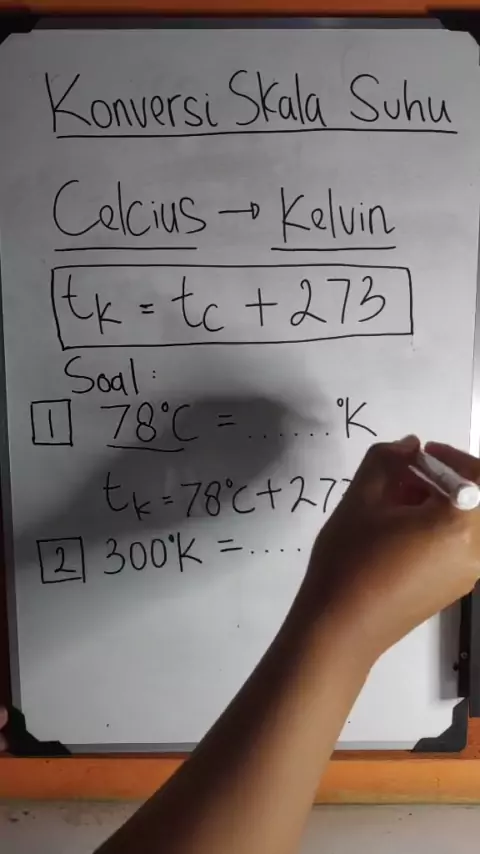 Konversi Skala Suhu
Celcius → Kelvin
tK = tC + 273
Soal :
1 78°C = ...... °K
tK = 78°C + 27
2 300°K = ....